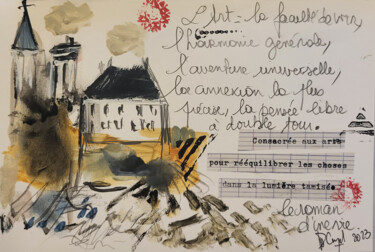 L'Art = la faculté de voir,
l'harmonie générale,
l'aventure universelle,
la connexion la plus
précieuse, la pensée libre
à double tour.
Consacrée aux arts
pour rééquilibrer les choses
dans la lumière tamisée
le roman
d'une vie.
2023